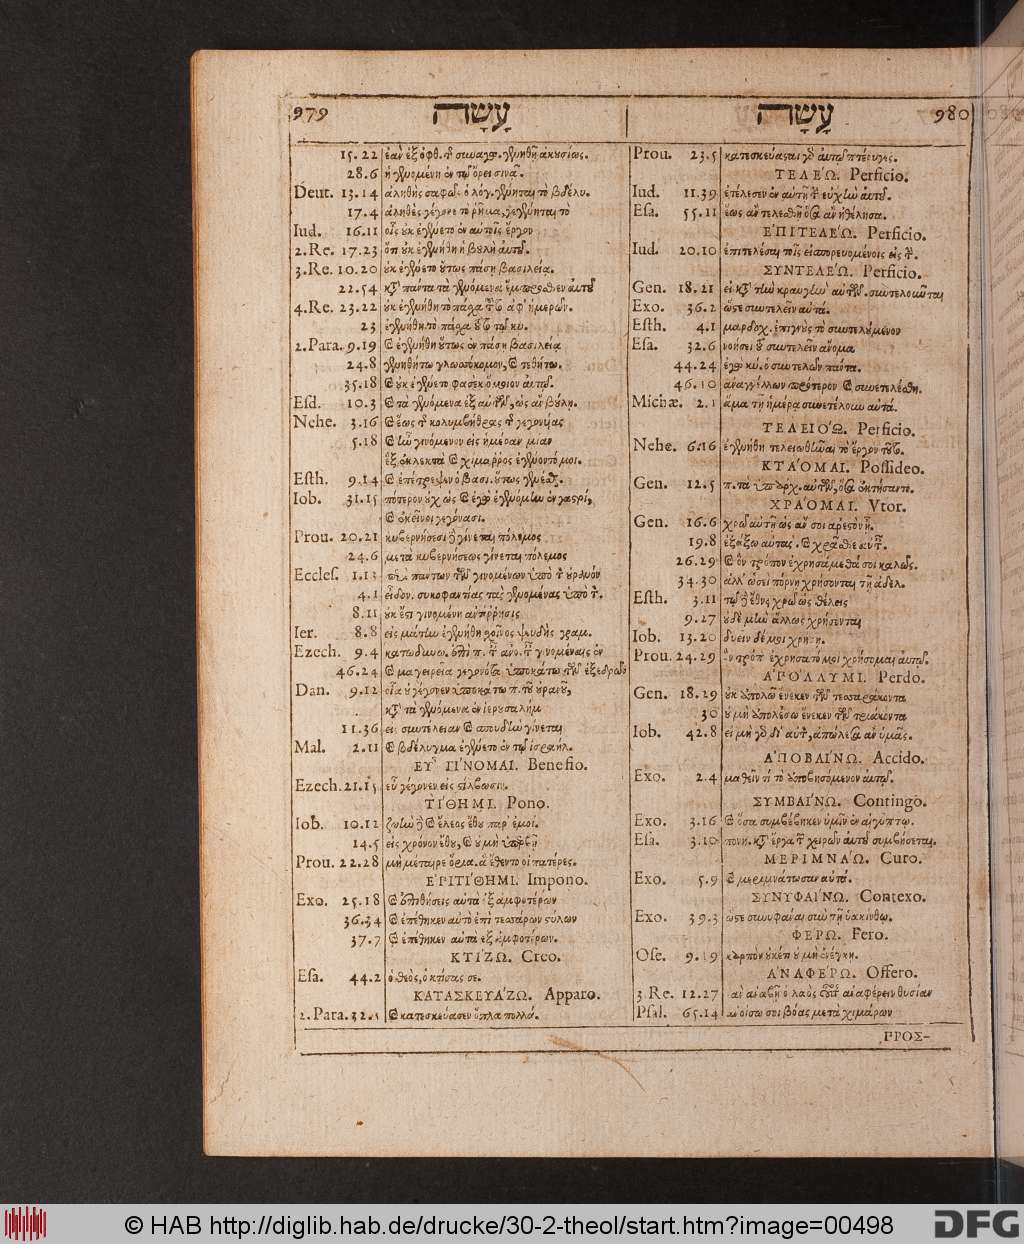 979 עָשָׂה
15.22 ἐὰν ἐξ ὀφθ. τ συναγω. γένηται ἀκουσίως.
28.6 ἡ γενομένη ἐν τῷ ὄρει σινᾶ.
Deut. 13.14 ἀληθὴς σαφῶς ὁ λόγ. γεγένηται τὸ βδέλυ.
17.4 ἀληθὲς γέγονε τὸ ῥῆμα, γεγένηται τὸ
Iud. 16.11 οἷς οὐκ ἐγένετο ἐν αὐτοῖς ἔργον
2.Re. 17.23 ὅτι οὐκ ἐγενήθη ἡ βουλὴ αὐτοῦ.
3.Re. 10.20 οὐκ ἐγένετο οὕτως πάσῃ βασιλείᾳ.
22.54 κατὰ πάντα τὰ γενόμενα ἔμπροσθεν αὐτοῦ
4.Re. 23.22 οὐκ ἐγενήθη τὸ πάσχα τοῦτο ἀφ' ἡμερῶν.
23 ἐγενήθη τὸ πάσχα τοῦτο τῷ κυ.
2.Para. 9.19 οὐκ ἐγενήθη οὕτως ἐν πάσῃ βασιλείᾳ
24.8 γενηθήτω γλωσσόκομον, καὶ τεθήτω.
35.18 καὶ οὐκ ἐγένετο φασὲκ ὅμοιον αὐτῷ.
Esd. 10.3 καὶ τὰ γενόμενα ἐξ αὐτῶν, ὡς ἂν βούλῃ.
Nehe. 3.16 καὶ ἕως τ κολυμβήθρας τ γεγονυίας
5.18 καὶ ἦν γινόμενον εἰς ἡμέραν μίαν
ἓξ ἐκλεκτὰ καὶ χίμαρρος ἐγένοντό μοι.
Esth. 9.14 καὶ ἐπέτρεψεν ὁ βασι. οὕτως γενέσθ.
Iob. 31.15 πότερον οὐχ ὡς καὶ ἐγὼ ἐγενόμην ἐν γαστρὶ,
καὶ ἐκεῖνοι γεγόνασι.
Prou. 20.21 κυβερνήσεσι δὲ γίνεται πόλεμος
24.6 μετὰ κυβερνήσεως γίνεται πόλεμος
Eccles. 1.13 περὶ πάντων τῶν γινομένων ὑπὸ τ οὐρανόν
4.1 εἶδον συκοφαντίας τὰς γενομένας ὑπὸ τ.
8.11 οὐκ ἔστι γινομένη ἀντίῤῥησις
Ier. 8.8 εἰς μάτην ἐγενήθη σχοῖνος ψευδὴς γραμ.
Ezech. 9.4 κατωδυνω. ἐπὶ π. τ ἀνο. τ γινομέναις ἐν
46.24 καὶ μαγειρεῖα γεγονότα ὑποκάτω τῶν ἐξεδρῶν
Dan. 9.12 οἷα οὐ γέγονεν ὑποκάτω π. τοῦ οὐρανοῦ,
κατὰ τὰ γενόμενα ἐν ἱερουσαλήμ
11.36 εἰς συντέλειαν καὶ σπουδὴν γίνεται
Mal. 2.11 καὶ βδέλυγμα ἐγένετο ἐν τῷ ἰσραήλ.
ΕΥ͂ ΓΙΝΟΜΑΙ. Benefio.
Ezech. 21.15 εὖ γέγονεν εἰς στίλβωσιν.
ΤΙΘΗΜΙ. Pono.
Iob. 10.12 ζωὴν δὲ καὶ ἔλεος ἔθου παρ' ἐμοί.
14.5 εἰς χρόνον ἔθου, καὶ οὐ μὴ ὑπερβῇ
Prou. 22.28 μὴ μέταιρε ὅρια. ἃ ἔθεντο οἱ πατέρες.
ἘΡΙΤΙΘΗΜΙ. Impono.
Exo. 25.18 καὶ ἐπιθήσεις αὐτὰ ἐξ ἀμφοτέρων
36.34 καὶ ἐπέθηκεν αὐτὸ ἐπὶ τεσσάρων στύλων
37.7 καὶ ἐπέθηκεν αὐτὰ ἐξ ἀμφοτέρων.
ΚΤΙΖΩ. Creo.
Esa. 44.2 ὁ θεὸς, ὁ κτήσας σε.
ΚΑΤΑΣΚΕΥΑΖΩ. Apparo.
2.Para. 32.5 καὶ κατεσκεύασεν ὅπλα πολλά.
עָשָׂה 980
Prou. 23.5 κατεσκεύασται γὰρ αὐτῷ πτέρυγες.
ΤΕΛΕΩ. Perficio.
Iud. 11.39 ἐτέλεσεν ἐν αὐτῇ τ εὐχὴν αὐτοῦ.
Esa. 55.11 ἕως ἂν τελεσθῇ ὅσα ἂν ἠθέλησα.
ἘΠΙΤΕΛΕΩ. Perficio.
Iud. 20.10 ἐπιτελέσαι τοῖς εἰσπορευομένοις εἰς τ.
ΣΥΝΤΕΛΕΩ. Perficio.
Gen. 18.21 εἰ κατὰ τὴν κραυγὴν αὐτῶν. συντελοῦνται
Exo. 36.2 ὥστε συντελεῖν αὐτά.
Esth. 4.1 μαρδοχ. ἐπιγνοὺς τὸ συντελούμενον
Esa. 32.6 νοήσει τοῦ συντελεῖν ἄνομα
44.24 ἐγὼ κύ. ὁ συντελῶν πάντα.
46.10 ἀναγγέλλων πρότερον καὶ συνετελέσθη.
Michæ. 2.1 ἅμα τῇ ἡμέρᾳ συνετέλουν αὐτά.
ΤΕΛΕΙΟΩ. Perficio.
Nehe. 6.16 ἐγενήθη τελειωθῆναι τὸ ἔργον τοῦτο.
ΚΤΑΟΜΑΙ. Possideo.
Gen. 12.5 π. τὰ ὑπάρχ. αὐτῶν, ὅσα ἐκτήσαντο.
ΧΡΑΟΜΑΙ. Vtor.
Gen. 16.6 χρῶ αὐτῇ ὡς ἄν σοι ἀρεστὸν ᾖ.
19.8 ἐξάξω αὐτὰς. καὶ χρᾶσθε αὐτ.
26.29 καὶ ὃν τρόπον ἐχρησάμεθά σοι καλῶς.
34.30 ἀλλ' ὡσεὶ πόρνῃ χρήσονται τῇ ἀδελ.
Esth. 3.11 τῷ δὲ ἔθνει χρῶ ὡς θέλεις
9.27 οὐδὲ μὴν ἄλλως χρήσονται
Iob. 13.20 δυεῖν δέ μοι χρήσῃ.
Prou. 24.29 ὃν τρόπ ἐχρήσατό μοι χρήσομαι αὐτῷ.
ἈΡΟΛΛΥΜΙ. Perdo.
Gen. 18.29 οὐκ ἀπολῶ ἕνεκεν τῶν τεσσαράκοντα
30 οὐ μὴ ἀπολέσω ἕνεκεν τῶν τριάκοντα
Iob. 42.8 εἰ μὴ γὰρ δι' αὐτ, ἀπώλεσα ἂν ὑμᾶς.
ἈΠΟΒΑΙΝΩ. Accido.
Exo. 2.4 μαθεῖν τί τὸ ἀποβησόμενον αὐτῷ.
ΣΥΜΒΑΙΝΩ. Contingo.
Exo. 3.16 καὶ ὅσα συμβέβηκεν ὑμῖν ἐν αἰγύπτῳ.
Esa. 3.10 πονη. κατὰ ἔργα τ χειρῶν αὐτοῦ συμβήσεται.
ΜΕΡΙΜΝΑΩ. Curo.
Exo. 5.9 καὶ μεριμνάτωσαν αὐτά.
ΣΥΝΥΦΑΙΝΩ. Contexo.
Exo. 39.3 ὥστε συνυφᾶναι σὺν τῇ ὑακίνθῳ.
ΦΕΡΩ. Fero.
Ose. 9.19 καρπὸν οὐκέτι οὐ μὴ ἐνέγκῃ.
ἈΝΑΦΕΡΩ. Offero.
3.Re. 12.27 ἐὰν ἀναβῇ ὁ λαὸς οὗτος ἀναφέρειν θυσίαν
Psal. 65.14 ἀνοίσω σοι βόας μετὰ χιμάρων
ΠΡΟΣ-
© HAB http://diglib.hab.de/drucke/30-2-theol/start.htm?image=00498
DFG